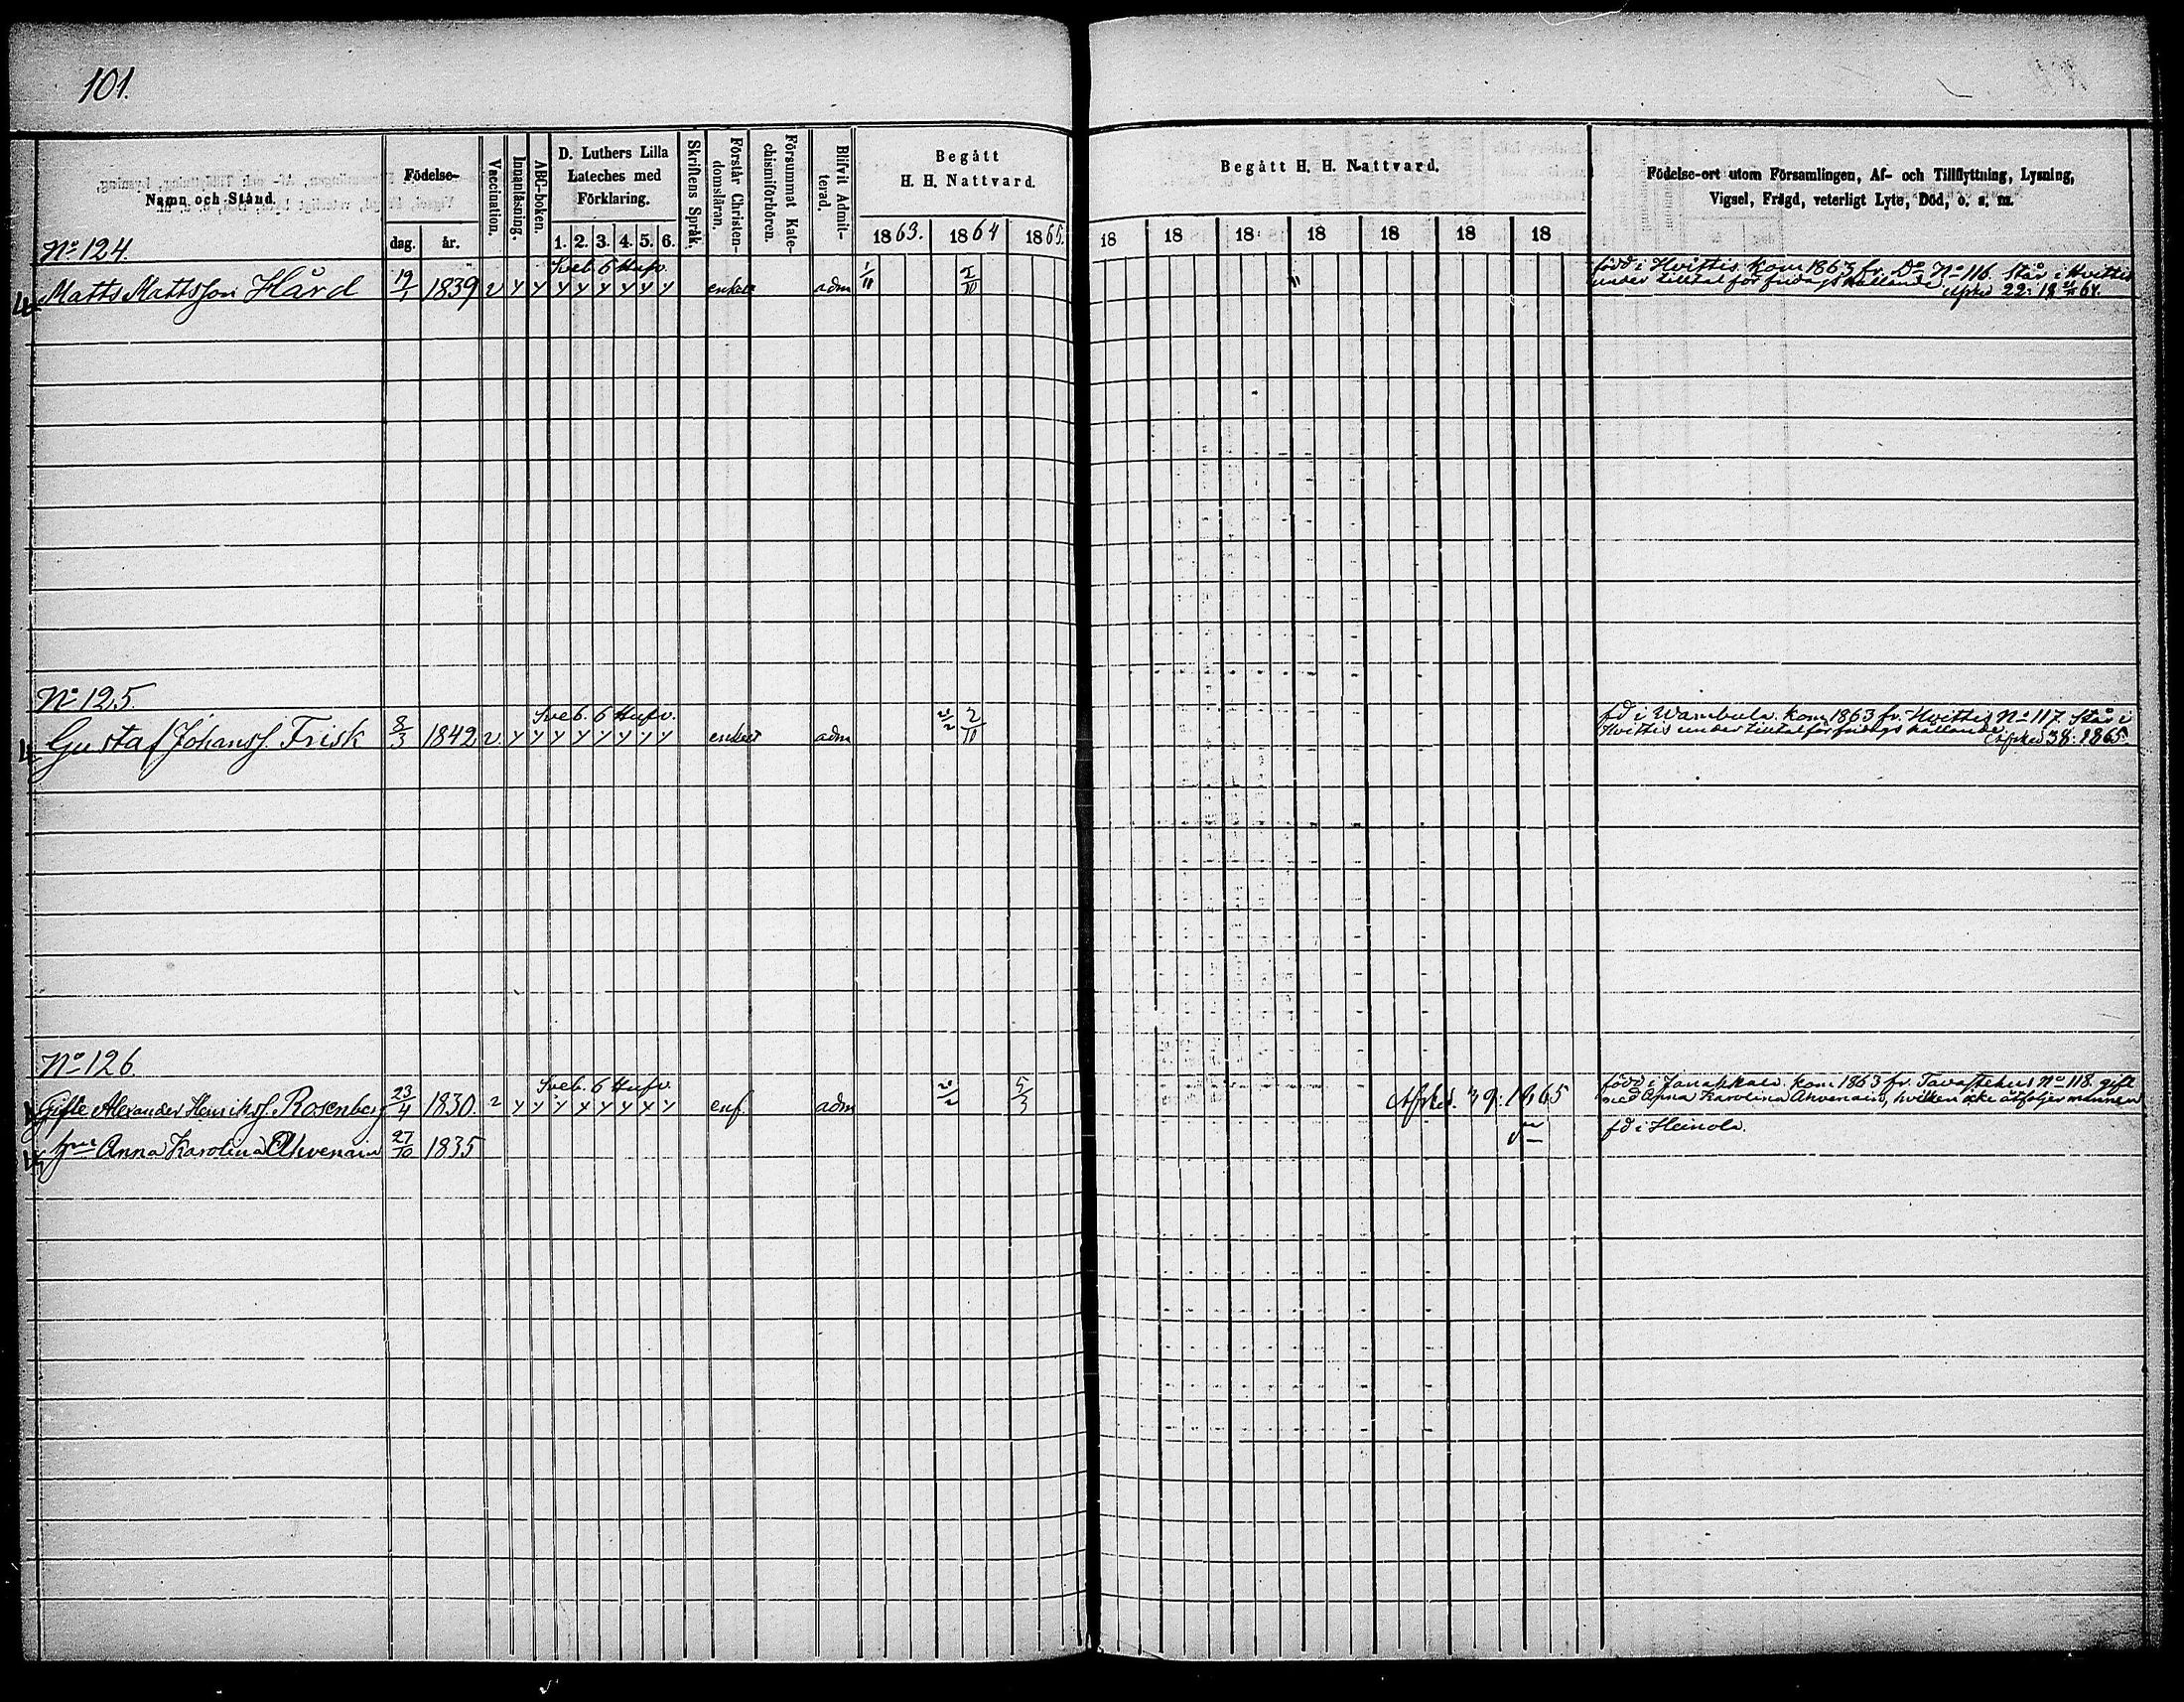 101.
Namn och Stånd.
Födelse-
dag. år.
Vaccination.
Innanläsning.
ABC-boken.
D. Luthers Lilla
Lateches med
Förklaring.
1. 2. 3. 4. 5. 6.
Skriftens Språk.
Förstår Christen-
domsläran.
Försummat Kate-
chismiförhören.
Blifvit Admit-
terad.
Begått
H. H. Nattvard.
1863. 1864 1865.
Begått H. H. Nattvard.
18 18 18 18 18 18 18
Födelse-ort utom Församlingen, Af- och Tillflyttning, Lysning,
Vigsel, Frägd, veterligt Lyte, Död, o. s. m.
No 124.
Sveb. 6 Hufv.
Matts Mattsson Hård 19/1 1839 v y y y y y y y y enkelt adm 1/11 2/10
född i Hvittis kom 1863 fr. Do No 116. Står i Hvittis
under tilltal för fridags hållande. Afsked 22: 18 64.
No 125.
Sveb. 6 Hufv.
Gustaf Johanss. Frisk 8/3 1842 v. y y y y y y y y enkelt adm 2/11
fd i Wambula. kom 1863 fr. Hvittis No 117. Står i
Hvittis under tilltal för fridags hållande Afsked 38: 1865.
No 126.
Sveb. 6 Hufv.
Gifte Alexander Henrikss. Rosenberg 23/4 1830. v y y y y y y y y enf. adm 5/3 Afsked. 39: 1865
född i Janakkala kom 1863 fr. Tavastehus No 118. gift
med Anna Karolina Ahvenain, hvilken icke åtföljer mannen
hu Anna Karolina Ahvenain 27/10 1835
fd i Heinola.